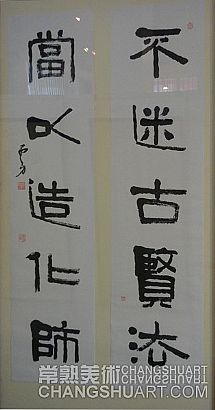 不迷古賢法
當以造化師
常熟美術 CHANGSHUART
CHANGSHUART.COM